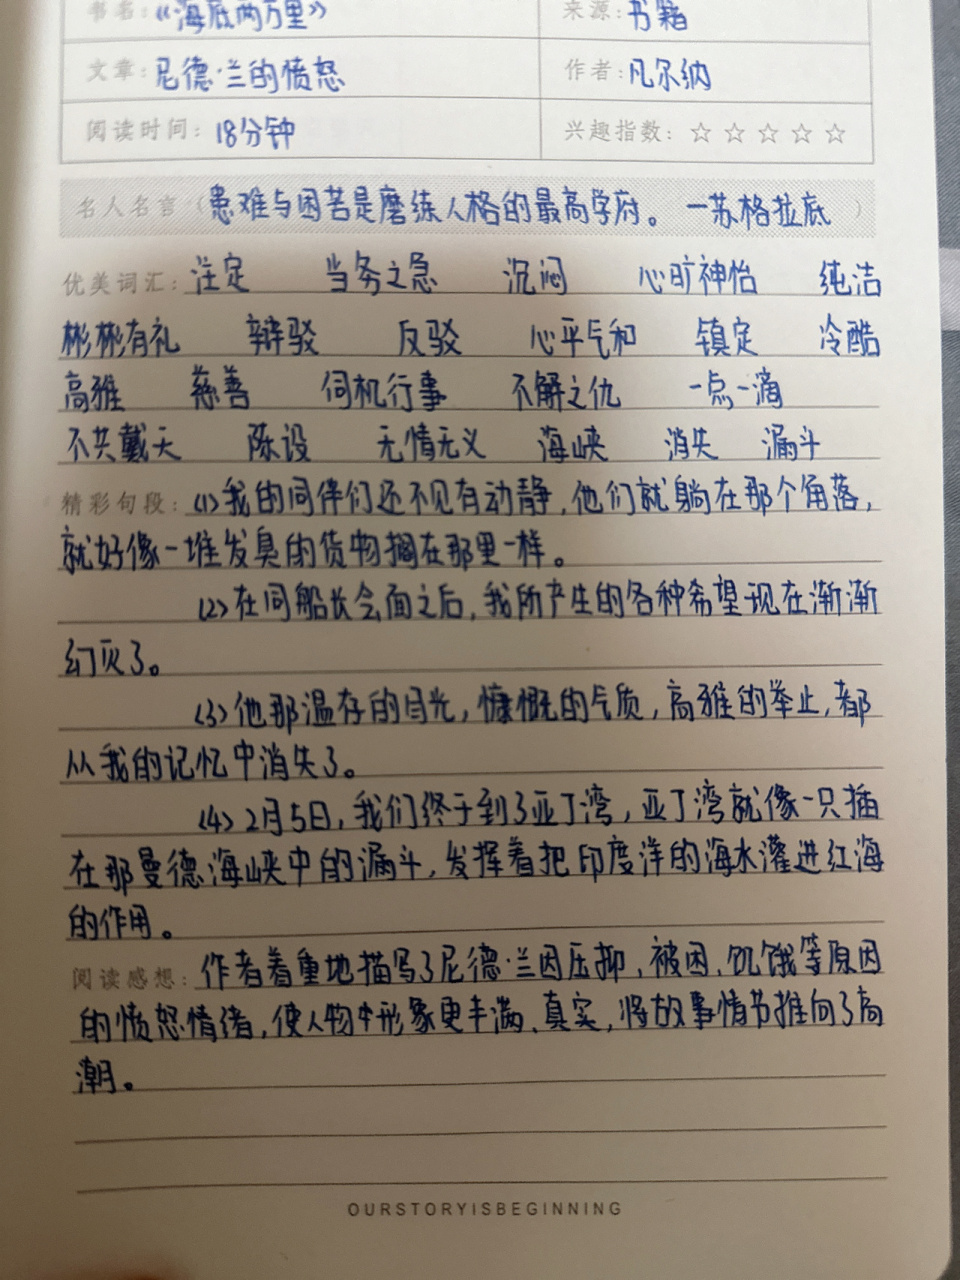 书名：《海底两万里》 来源：书籍
文章：尼德·兰的愤怒 作者：凡尔纳
阅读时间：18分钟 兴趣指数：☆ ☆ ☆ ☆ ☆
名人名言（患难与困苦是磨练人格的最高学府。 —苏格拉底 ）
优美词汇：注定 当务之急 沉闷 心旷神怡 纯洁
彬彬有礼 辩驳 反驳 心平气和 镇定 冷酷
高雅 慈善 伺机行事 不解之仇 一点一滴
不共戴天 陈设 无情无义 海峡 消失 漏斗
精彩句段：(1)我的同伴们还不见有动静，他们就躺在那个角落，
就好像一堆发臭的货物搁在那里一样。
(2)在同船长会面之后，我所产生的各种希望现在渐渐
幻灭了。
(3)他那温存的目光，慷慨的气质，高雅的举止，都
从我的记忆中消失了。
(4)2月5日，我们终于到了亚丁湾，亚丁湾就像一只插
在那曼德海峡中的漏斗，发挥着把印度洋的海水灌进红海
的作用。
阅读感想：作者着重地描写了尼德·兰因压抑、被困、饥饿等原因
的愤怒情绪，使人物形象更丰满、真实，将故事情节推向了高
潮。
OURSTORYISBEGINNING